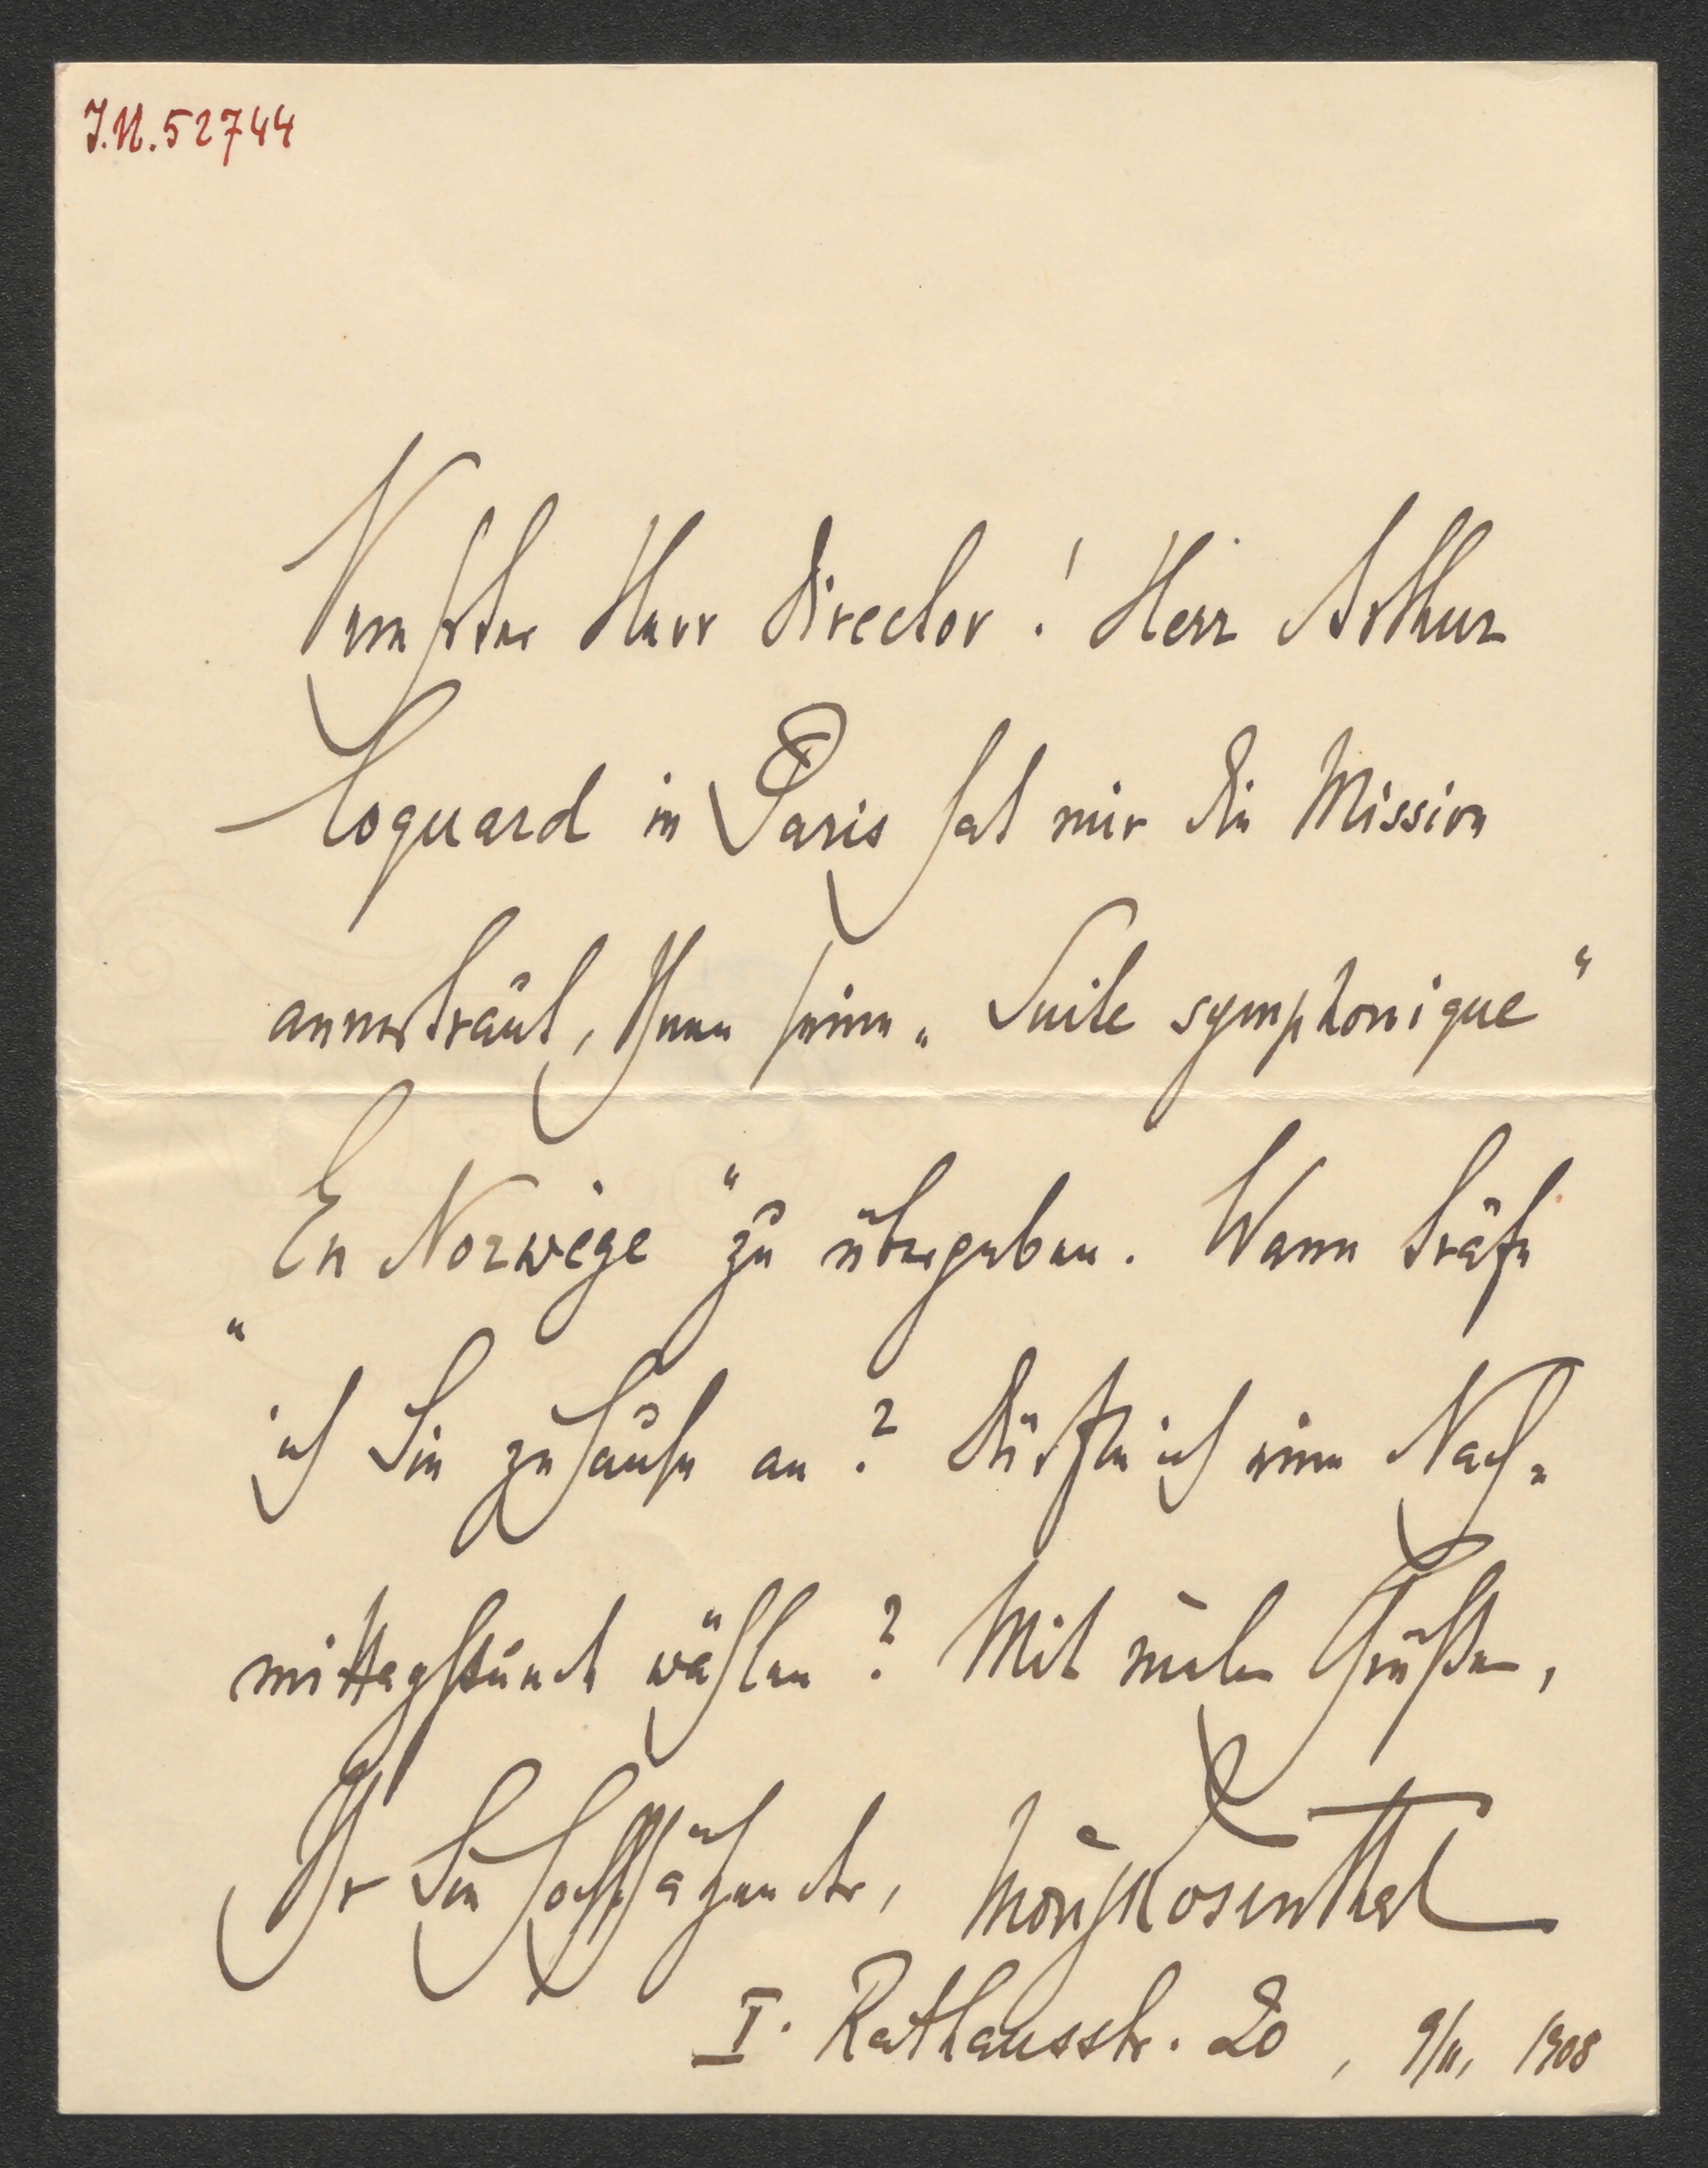 J.N. 52744
Verehrter Herr Director! Herr Arthur
Coquard in Paris hat mir die Mission
anvertraut, Ihnen seine „Suite symphonique“
„En Norwège“ zu übergeben. Wann träfe
ich Sie zuhause an? Dürfte ich eine Nach-
mittagstunde wählen? Mit vielen Grüßen,
Ihr Sie hochschätzender, Moriz Rosenthal
I. Rathausstr. 20, 9/II, 1908